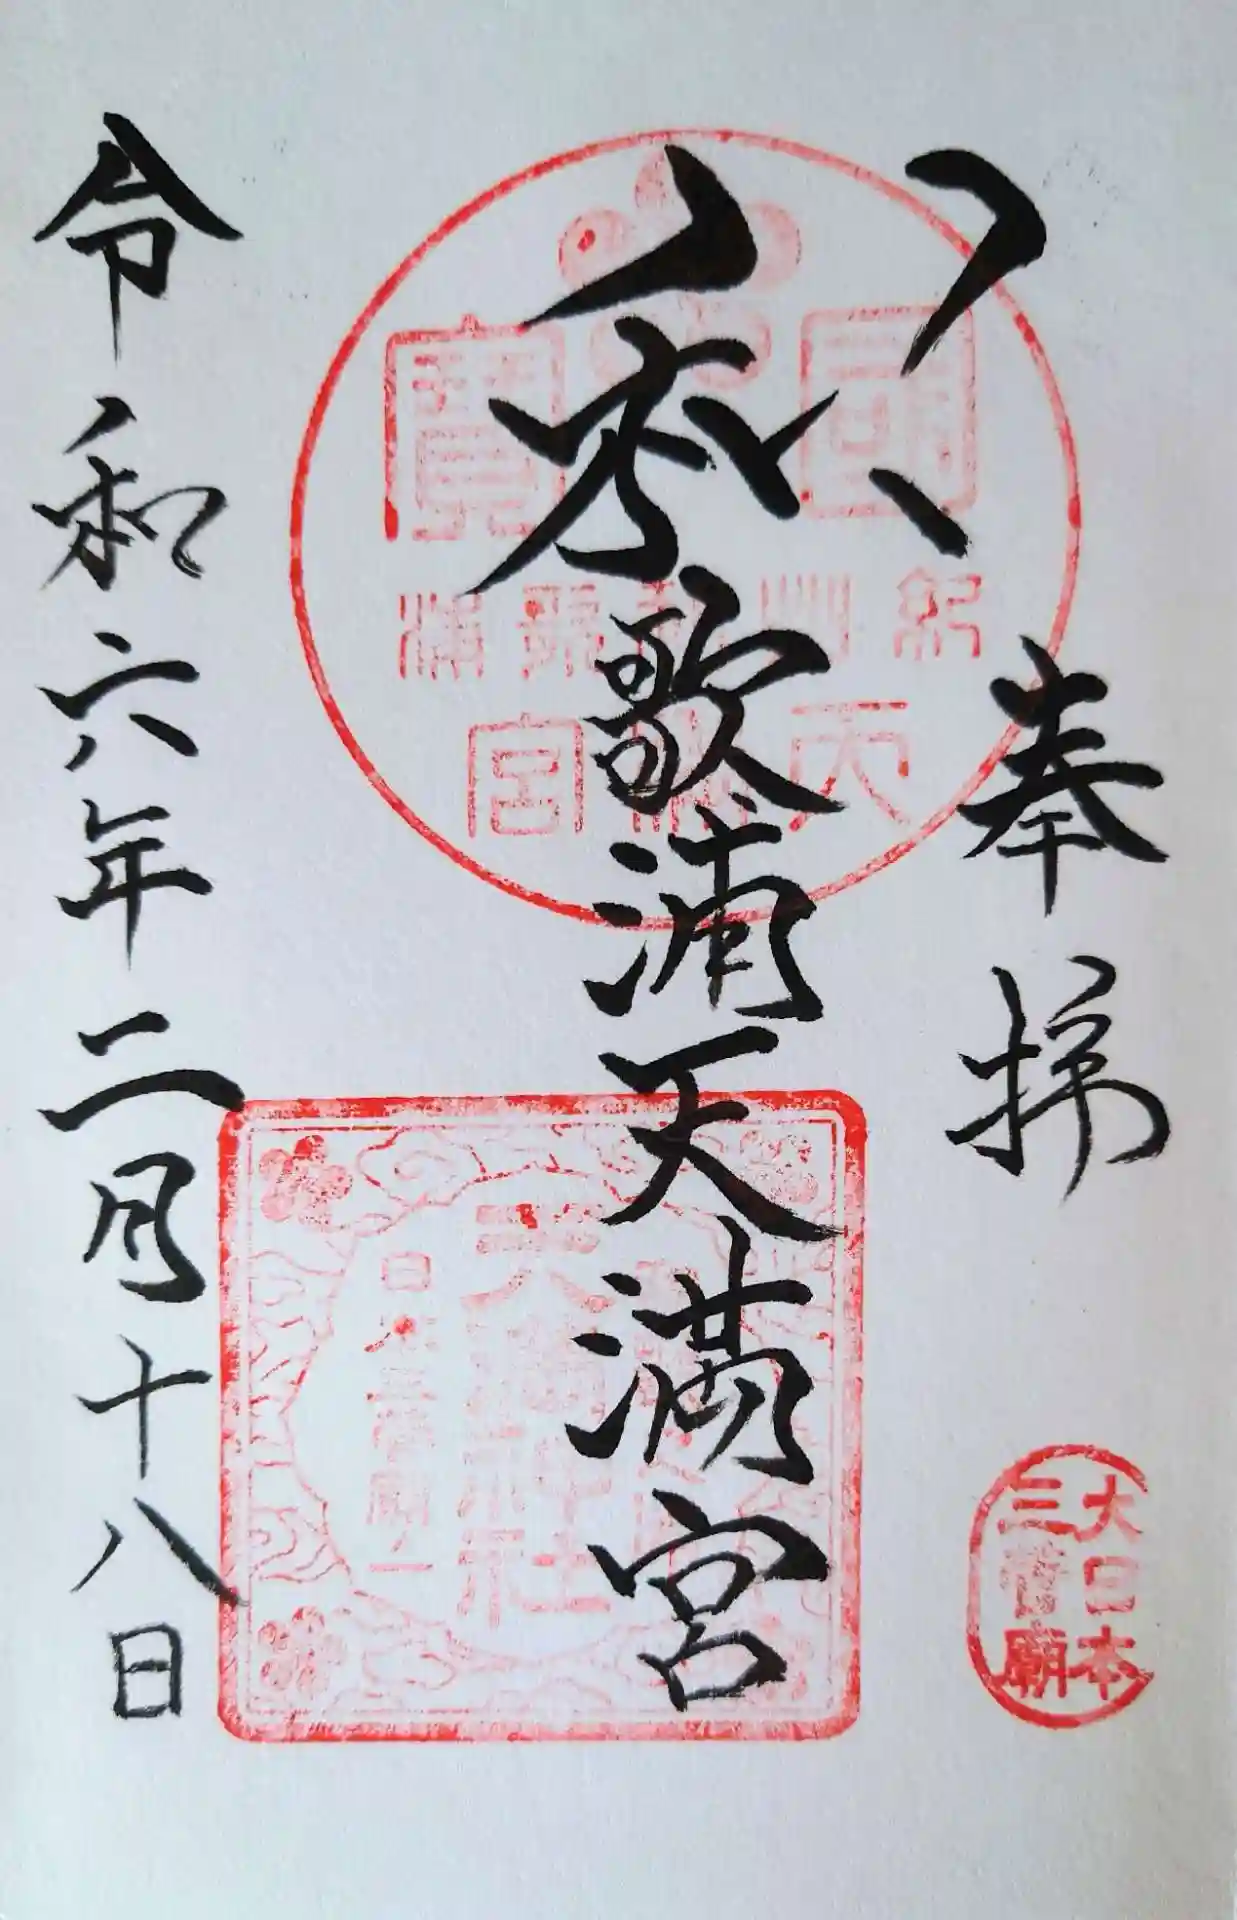 奉拝
大日本
三菅廟
和歌浦天満宮
國寳
紀州和歌浦
天満宮
天満神社
日本三菅廟之一
令和六年二月十八日